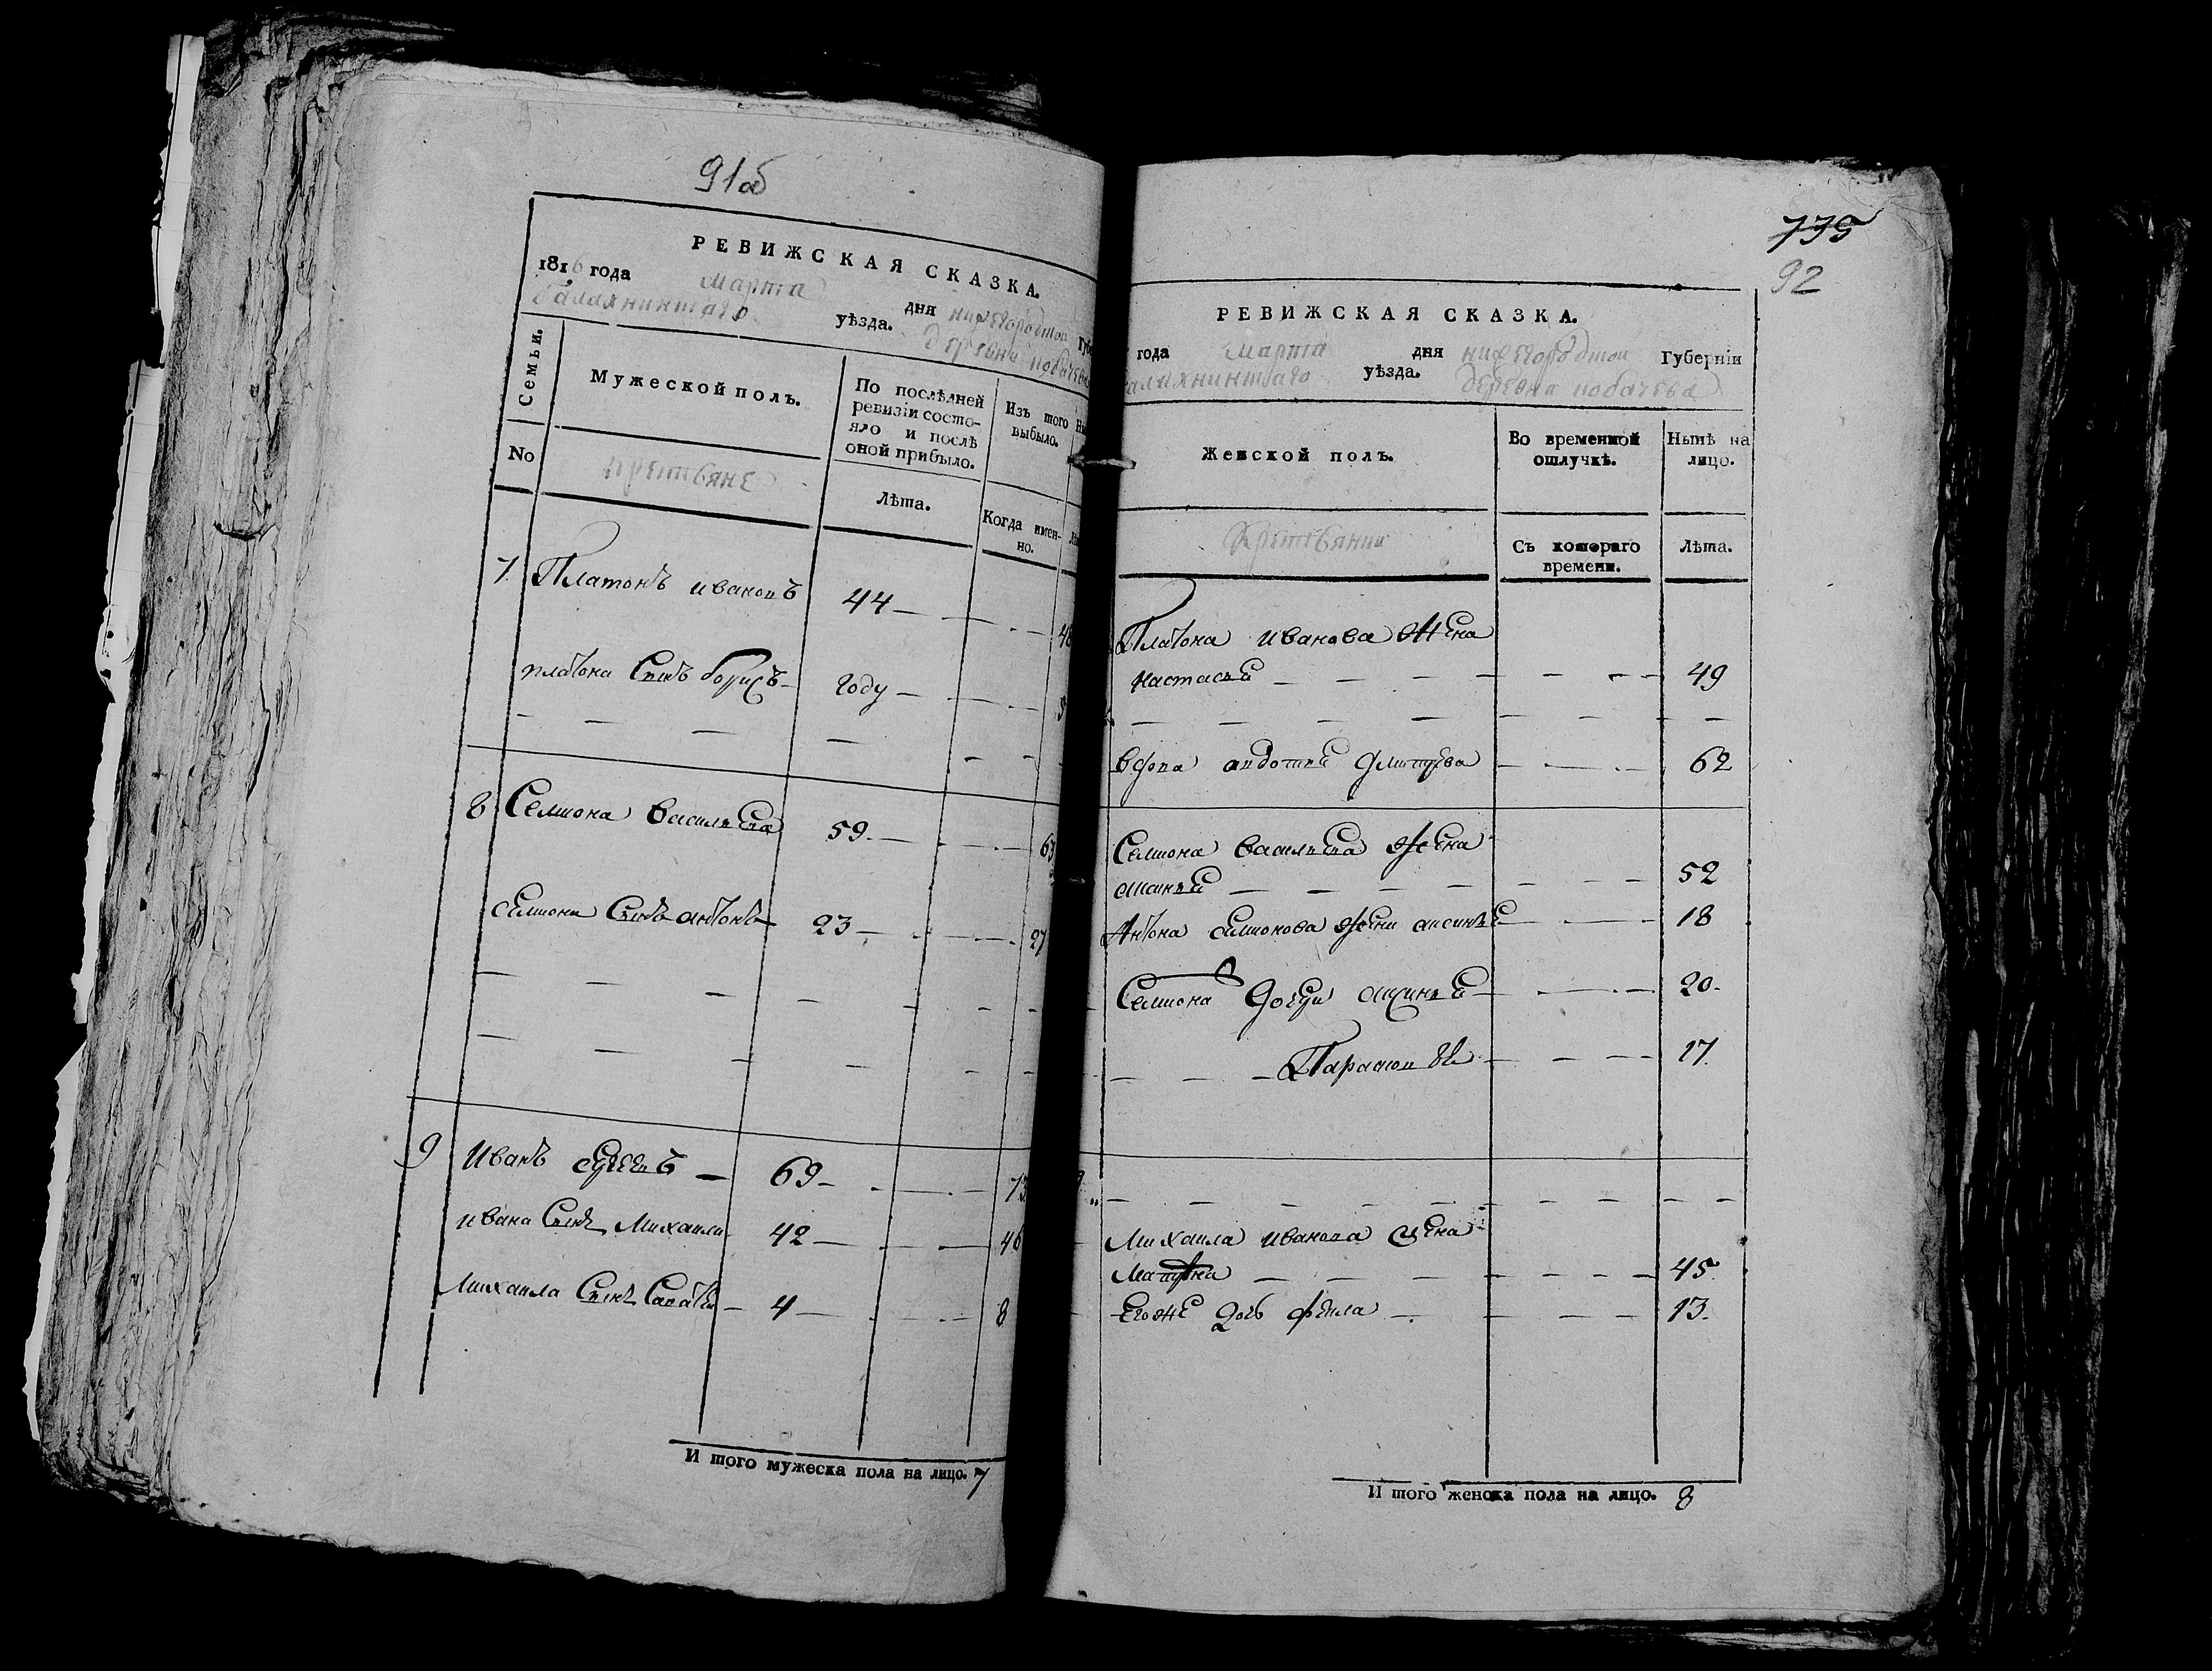 91об
РЕВИЖСКАЯ СКАЗКА.
1816 года марта дня нижегородской Губе
балахнинскаго уѣзда. деревни
Семьи.
Мужеской полъ.
По послѣдней ревизіи состояло и послѣ оной прибыло.
Изъ того выбыло.
No
крестьяне
Лѣта.
Когда именно.
7 Платонъ ивановъ 44 48
платона Сынъ борисъ году 5
8 Семиона Васильева 59 63
семиона Сынъ антонъ 23 27
9 Иванъ 69 73
ивана Сынъ Михаила 42 46
Михаила Сынъ 4 8
И того мужеска пола на лицо. 7
735
92
РЕВИЖСКАЯ СКАЗКА.
года марта дня нижегородской Губерніи
алахнинскаго уѣзда. деревни
Женской полъ.
Во временной отлучкѣ.
Нынѣ на лицо.
Съ котораго времени.
Лѣта.
Платона иванова жена
настасья 49
вдова авдотья 62
Семиона васильева жена
52
Антона семионова жена аксинья 18
Семиона дочери 20
17
Михаила иванова жена
45
Его же дочь 13
И того женска пола на лицо. 8